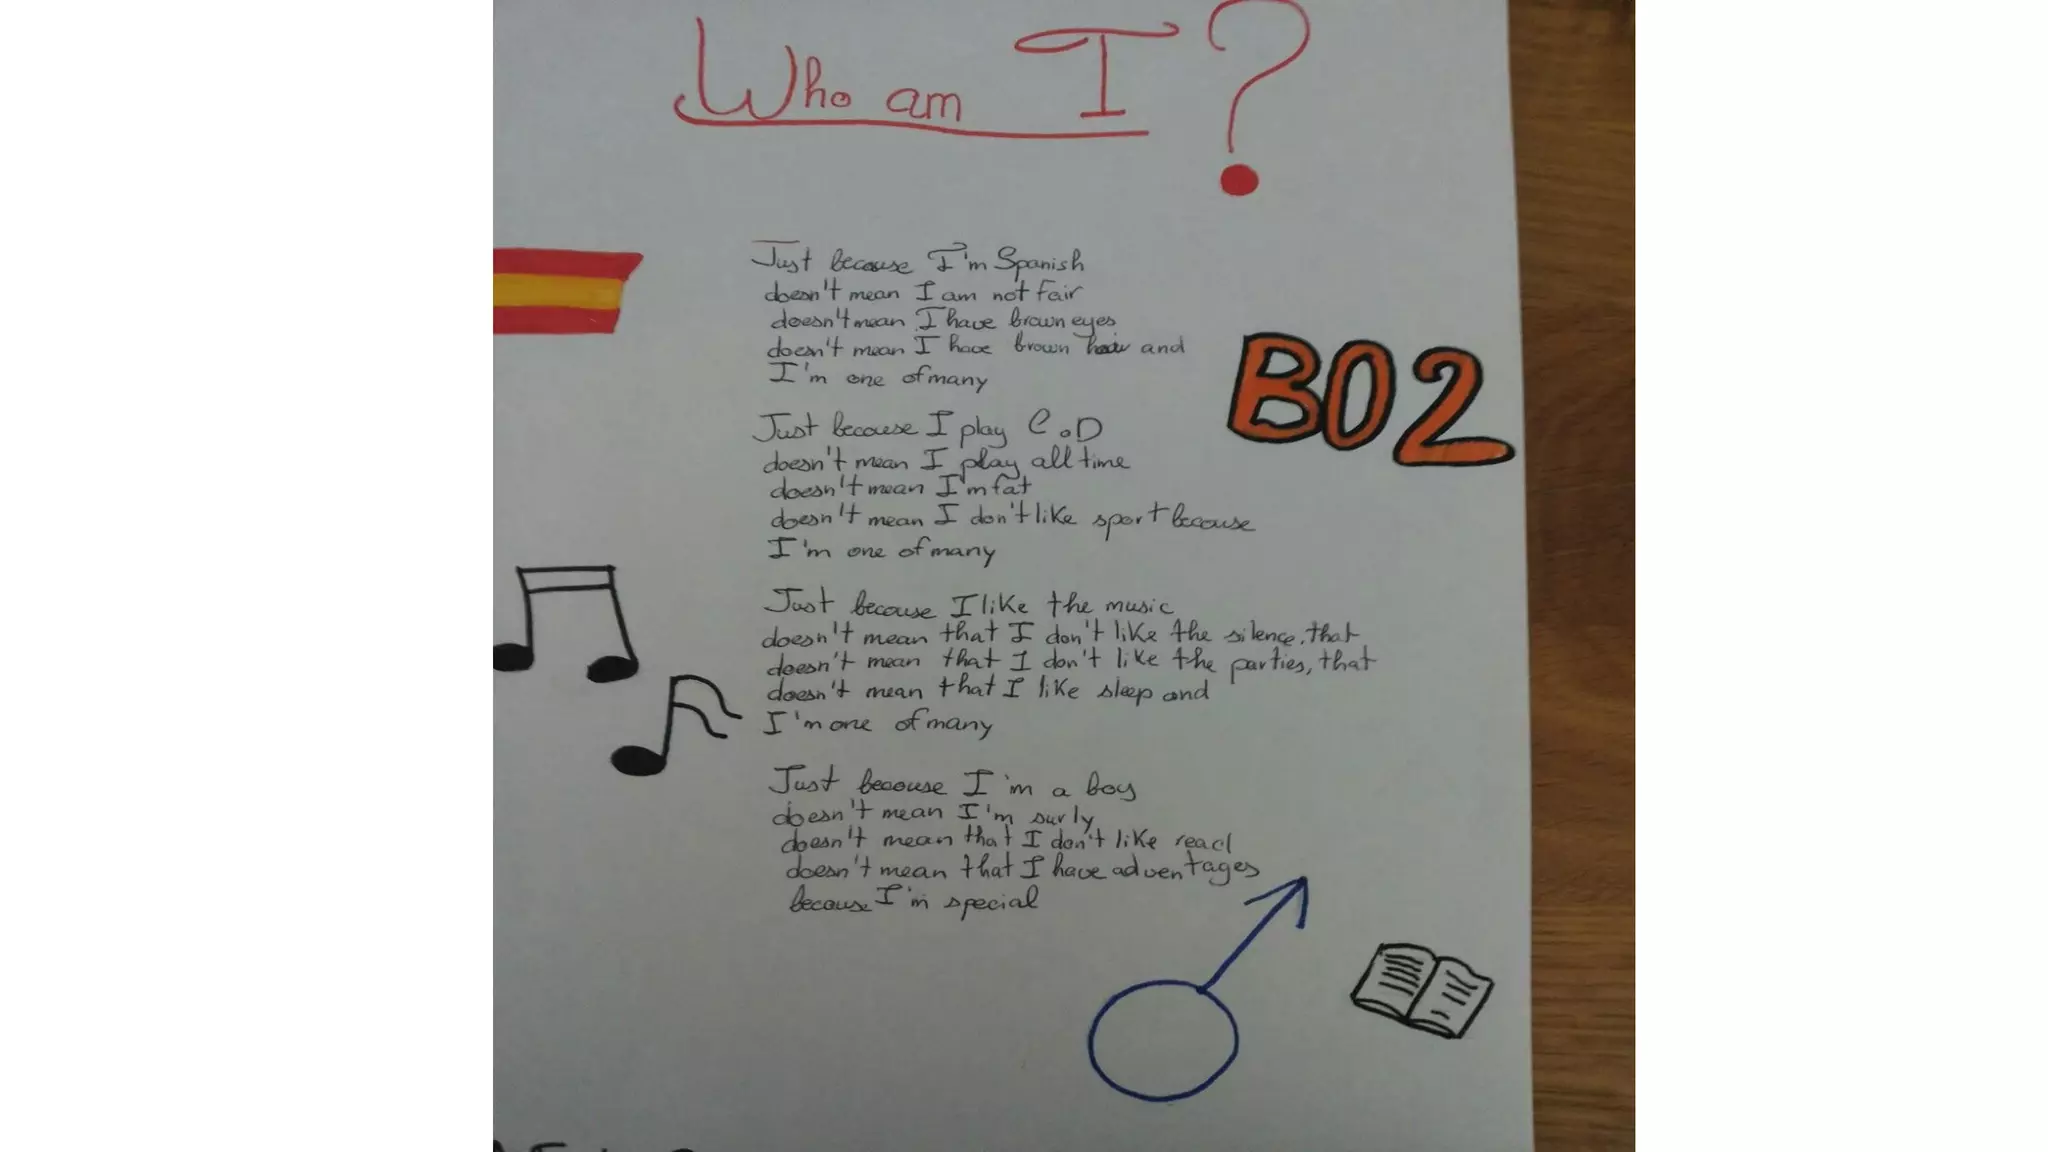 Who am I?
Just because I'm Spanish
doesn't mean I am not fair
doesn't mean I have brown eyes
doesn't mean I have brown hair and
I'm one of many
BO2
Just because I play C.oD
doesn't mean I play all time
doesn't mean I'm fat
doesn't mean I don't like sport because
I'm one of many
Just because I like the music
doesn't mean that I don't like the silence, that
doesn't mean that I don't like the parties, that
doesn't mean that I like sleep and
I'm one of many
Just because I'm a boy
doesn't mean I'm surly
doesn't mean that I don't like read
doesn't mean that I have adventages
because I'm special